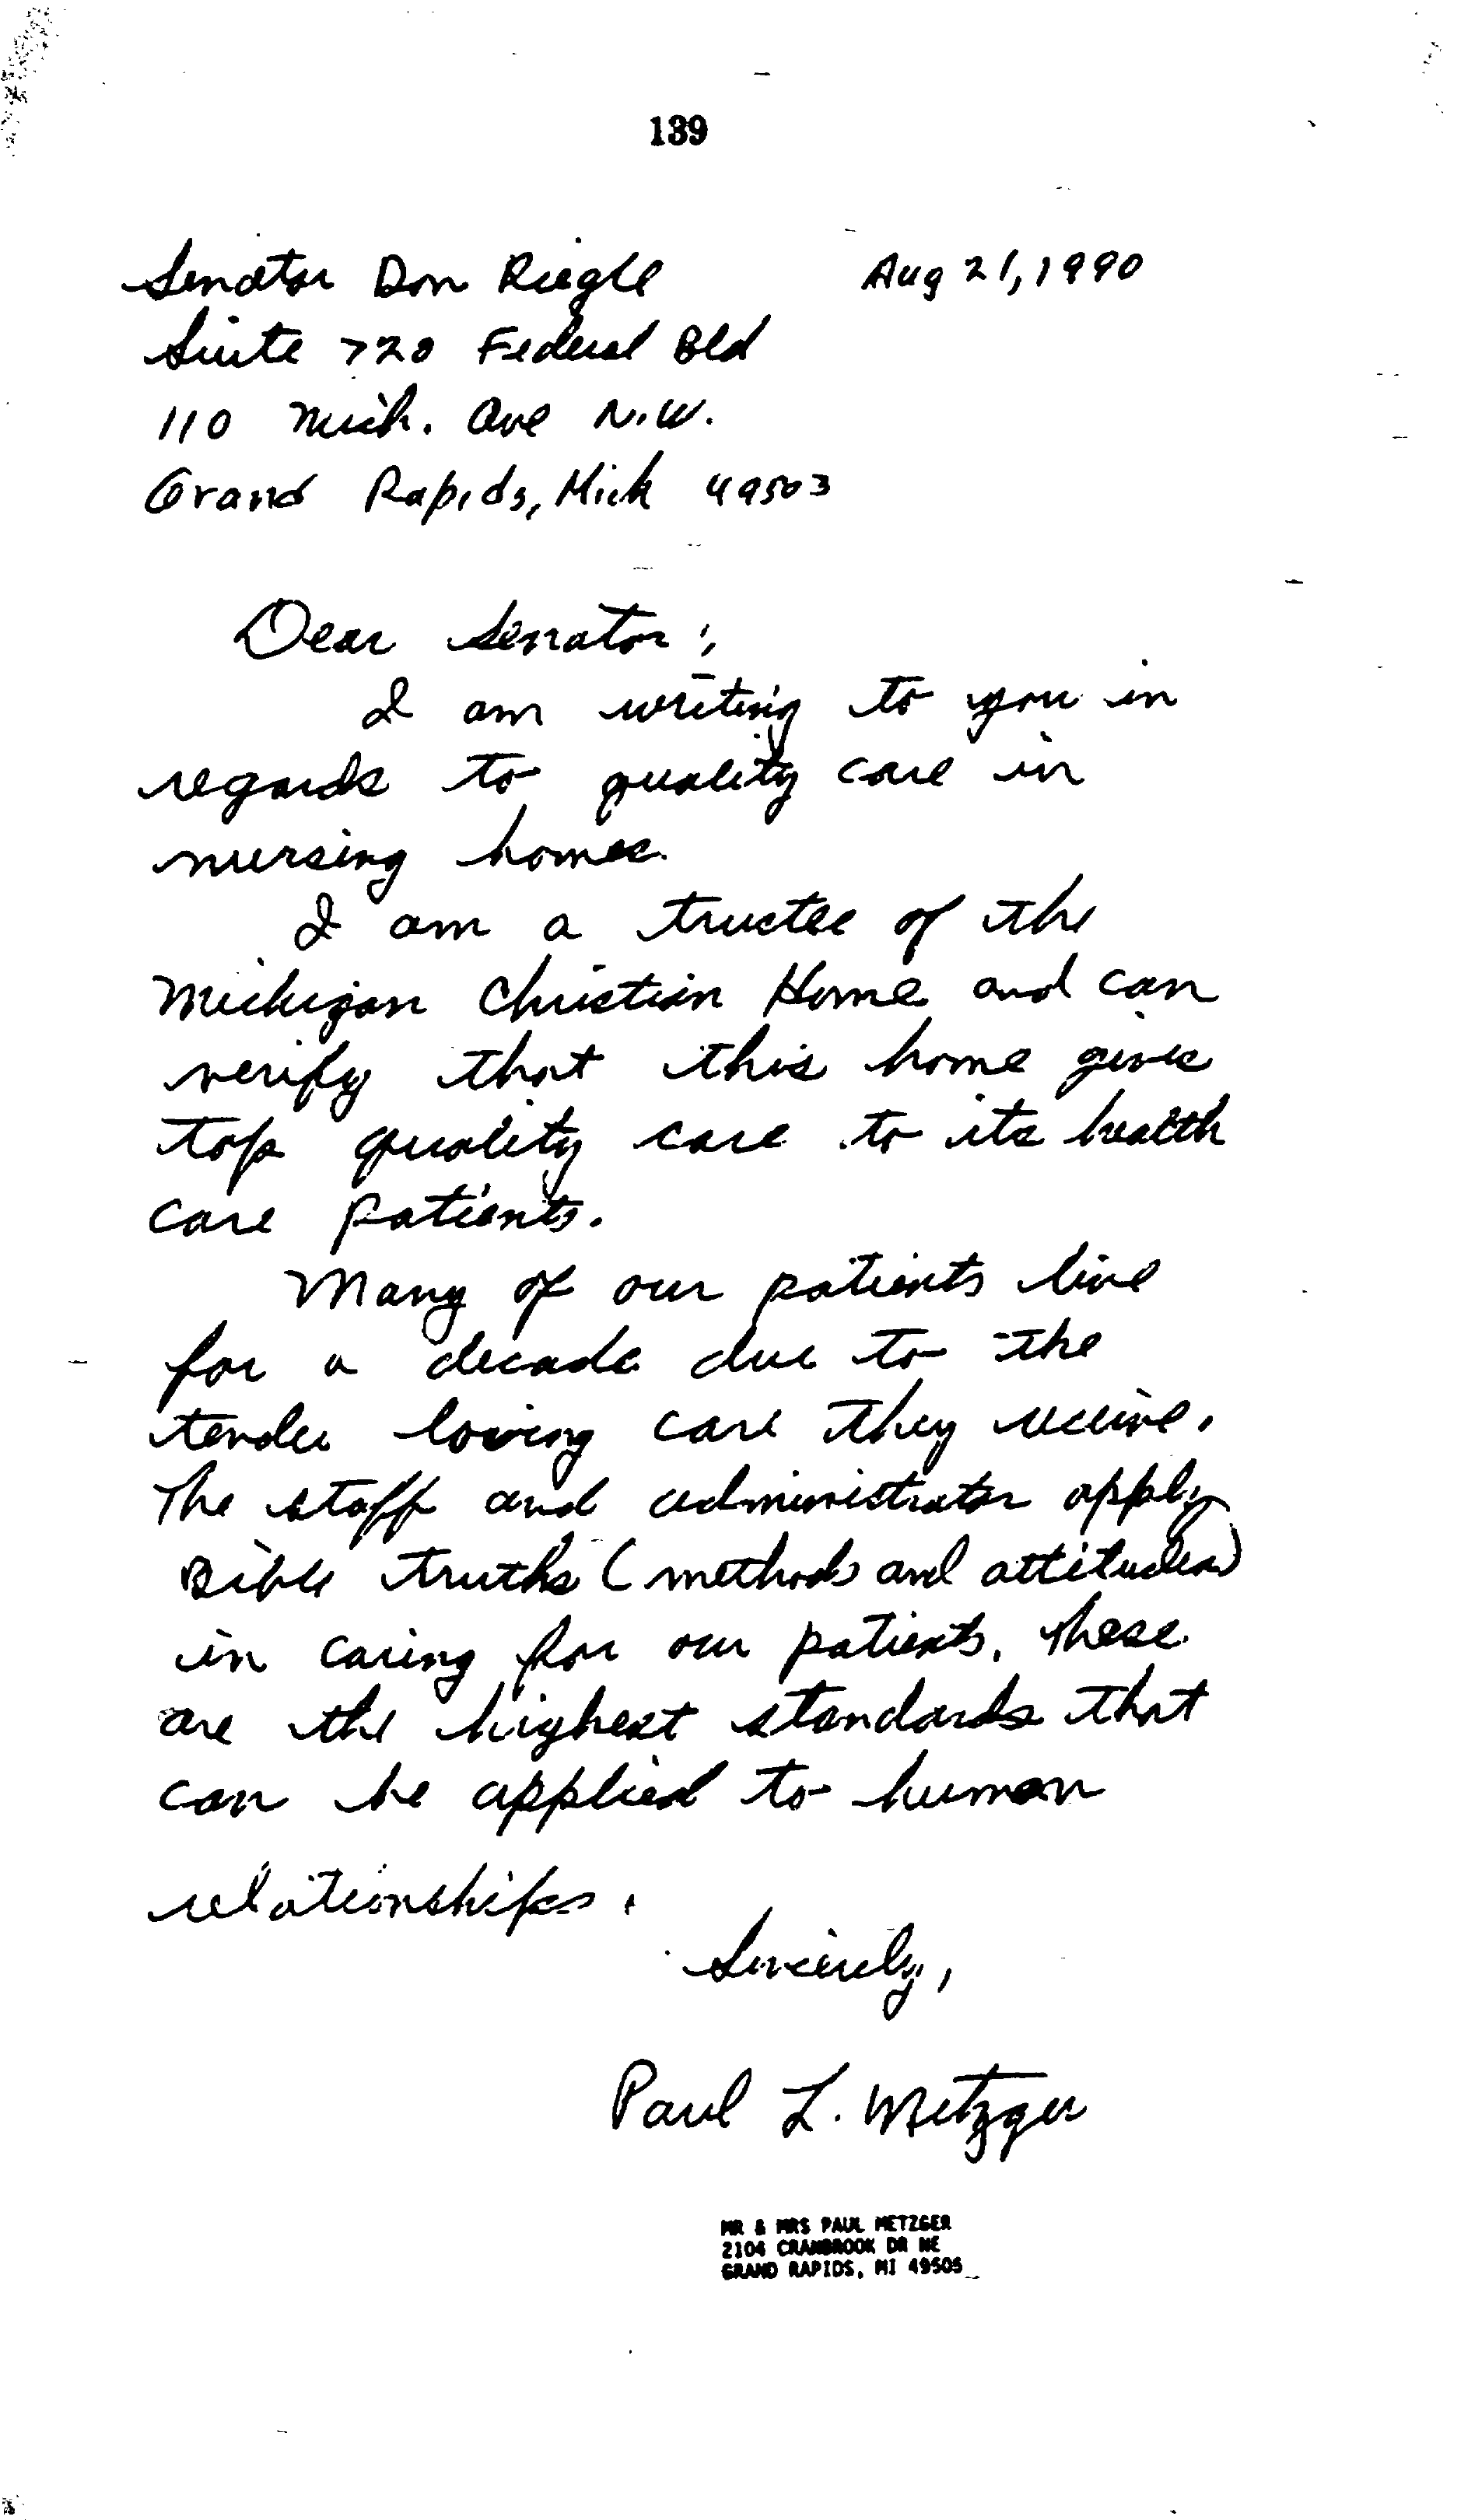 139
Senator Don Riegle Aug 21, 1990
Suite 720 Federal Bld
110 Mich. Ave N.W.
Grand Rapids, Mich 49503
Dear Senator:
I am writing to you in
regards to quality care in
nursing homes.
I am a trustee of the
Michigan Christian Home and can
verify that this home gives
top quality care to its health
care patients.
Many of our patients live
for a decade due to the
tender loving care they receive.
The staff and administrator apply
Bible truths (methods and attitudes)
in caring for our patients. These
are the highest standards that
can be applied to human
relationships.
Sincerely,
Paul L. Metzger
MR & MRS PAUL METZGER
2104 CRANBROOK DR NE
GRAND RAPIDS, MI 49505